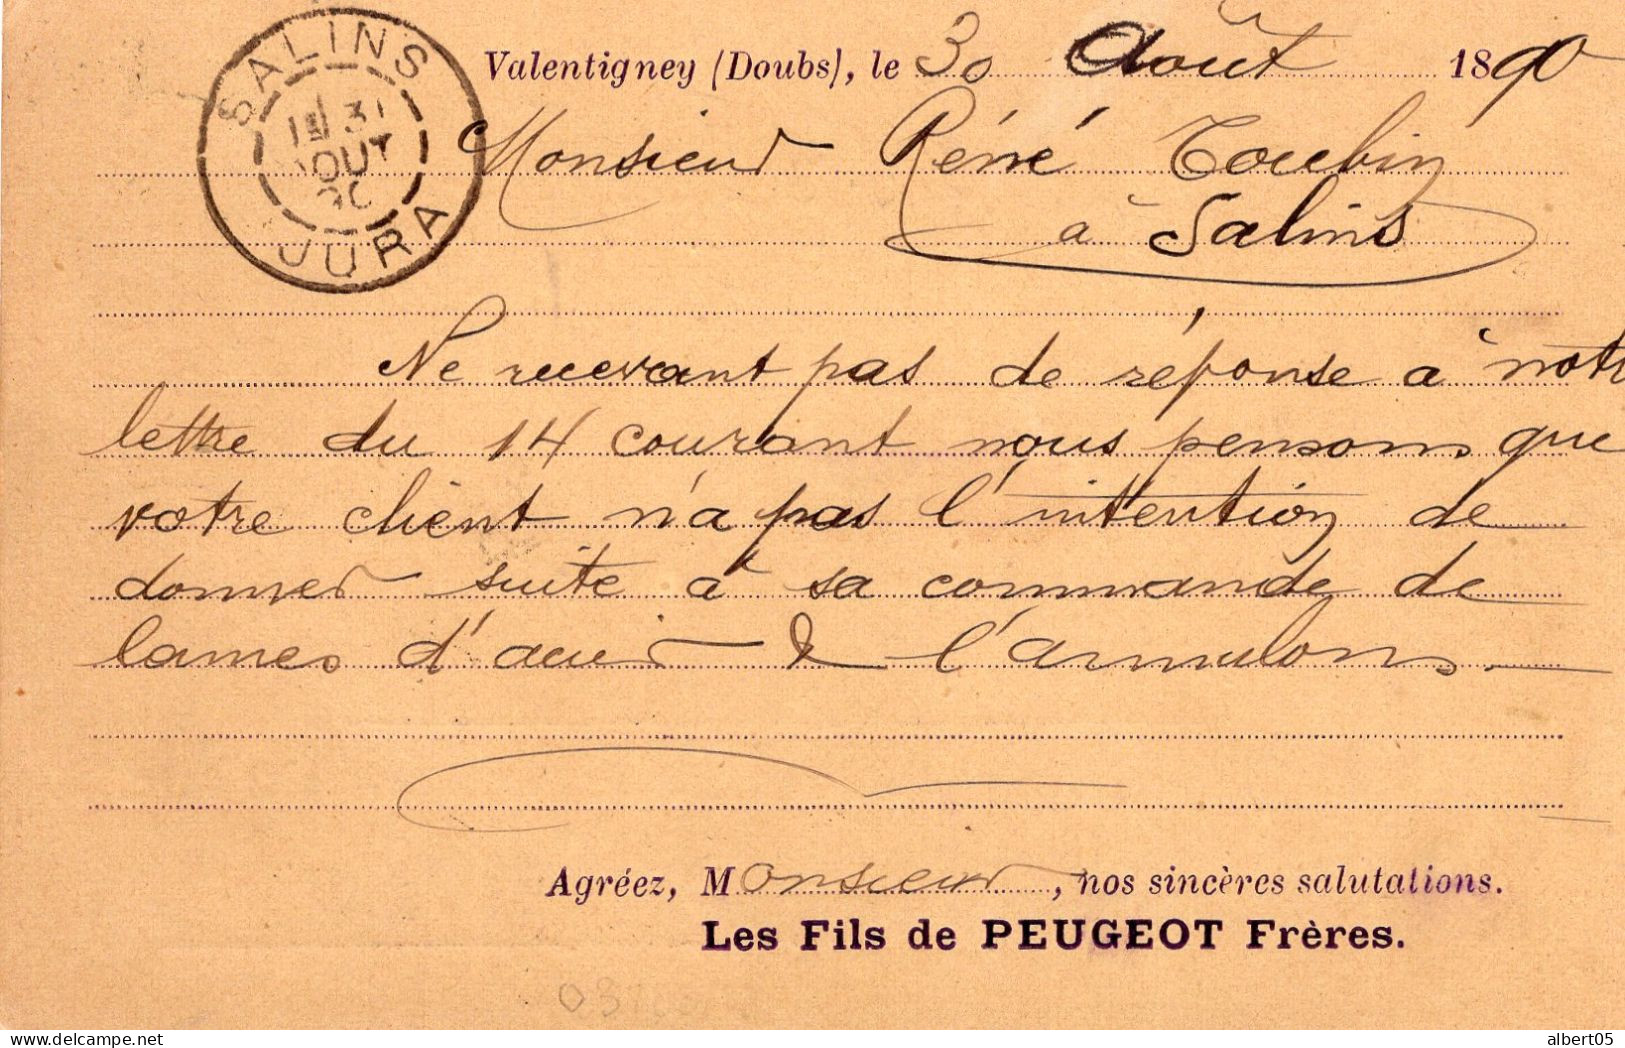 SALINS
1E 31
AOUT
90
JURA
Valentigney (Doubs), le 30 Août 1890
Monsieur Réné Toubin
à Salins
Ne recevant pas de réponse à notre
lettre du 14 courant nous pensons que
votre client n'a pas l'intention de
donner suite à sa commande de
lames d'acier & l'annulons.
Agréez, Monsieur, nos sincères salutations.
Les Fils de PEUGEOT Frères.
albert05